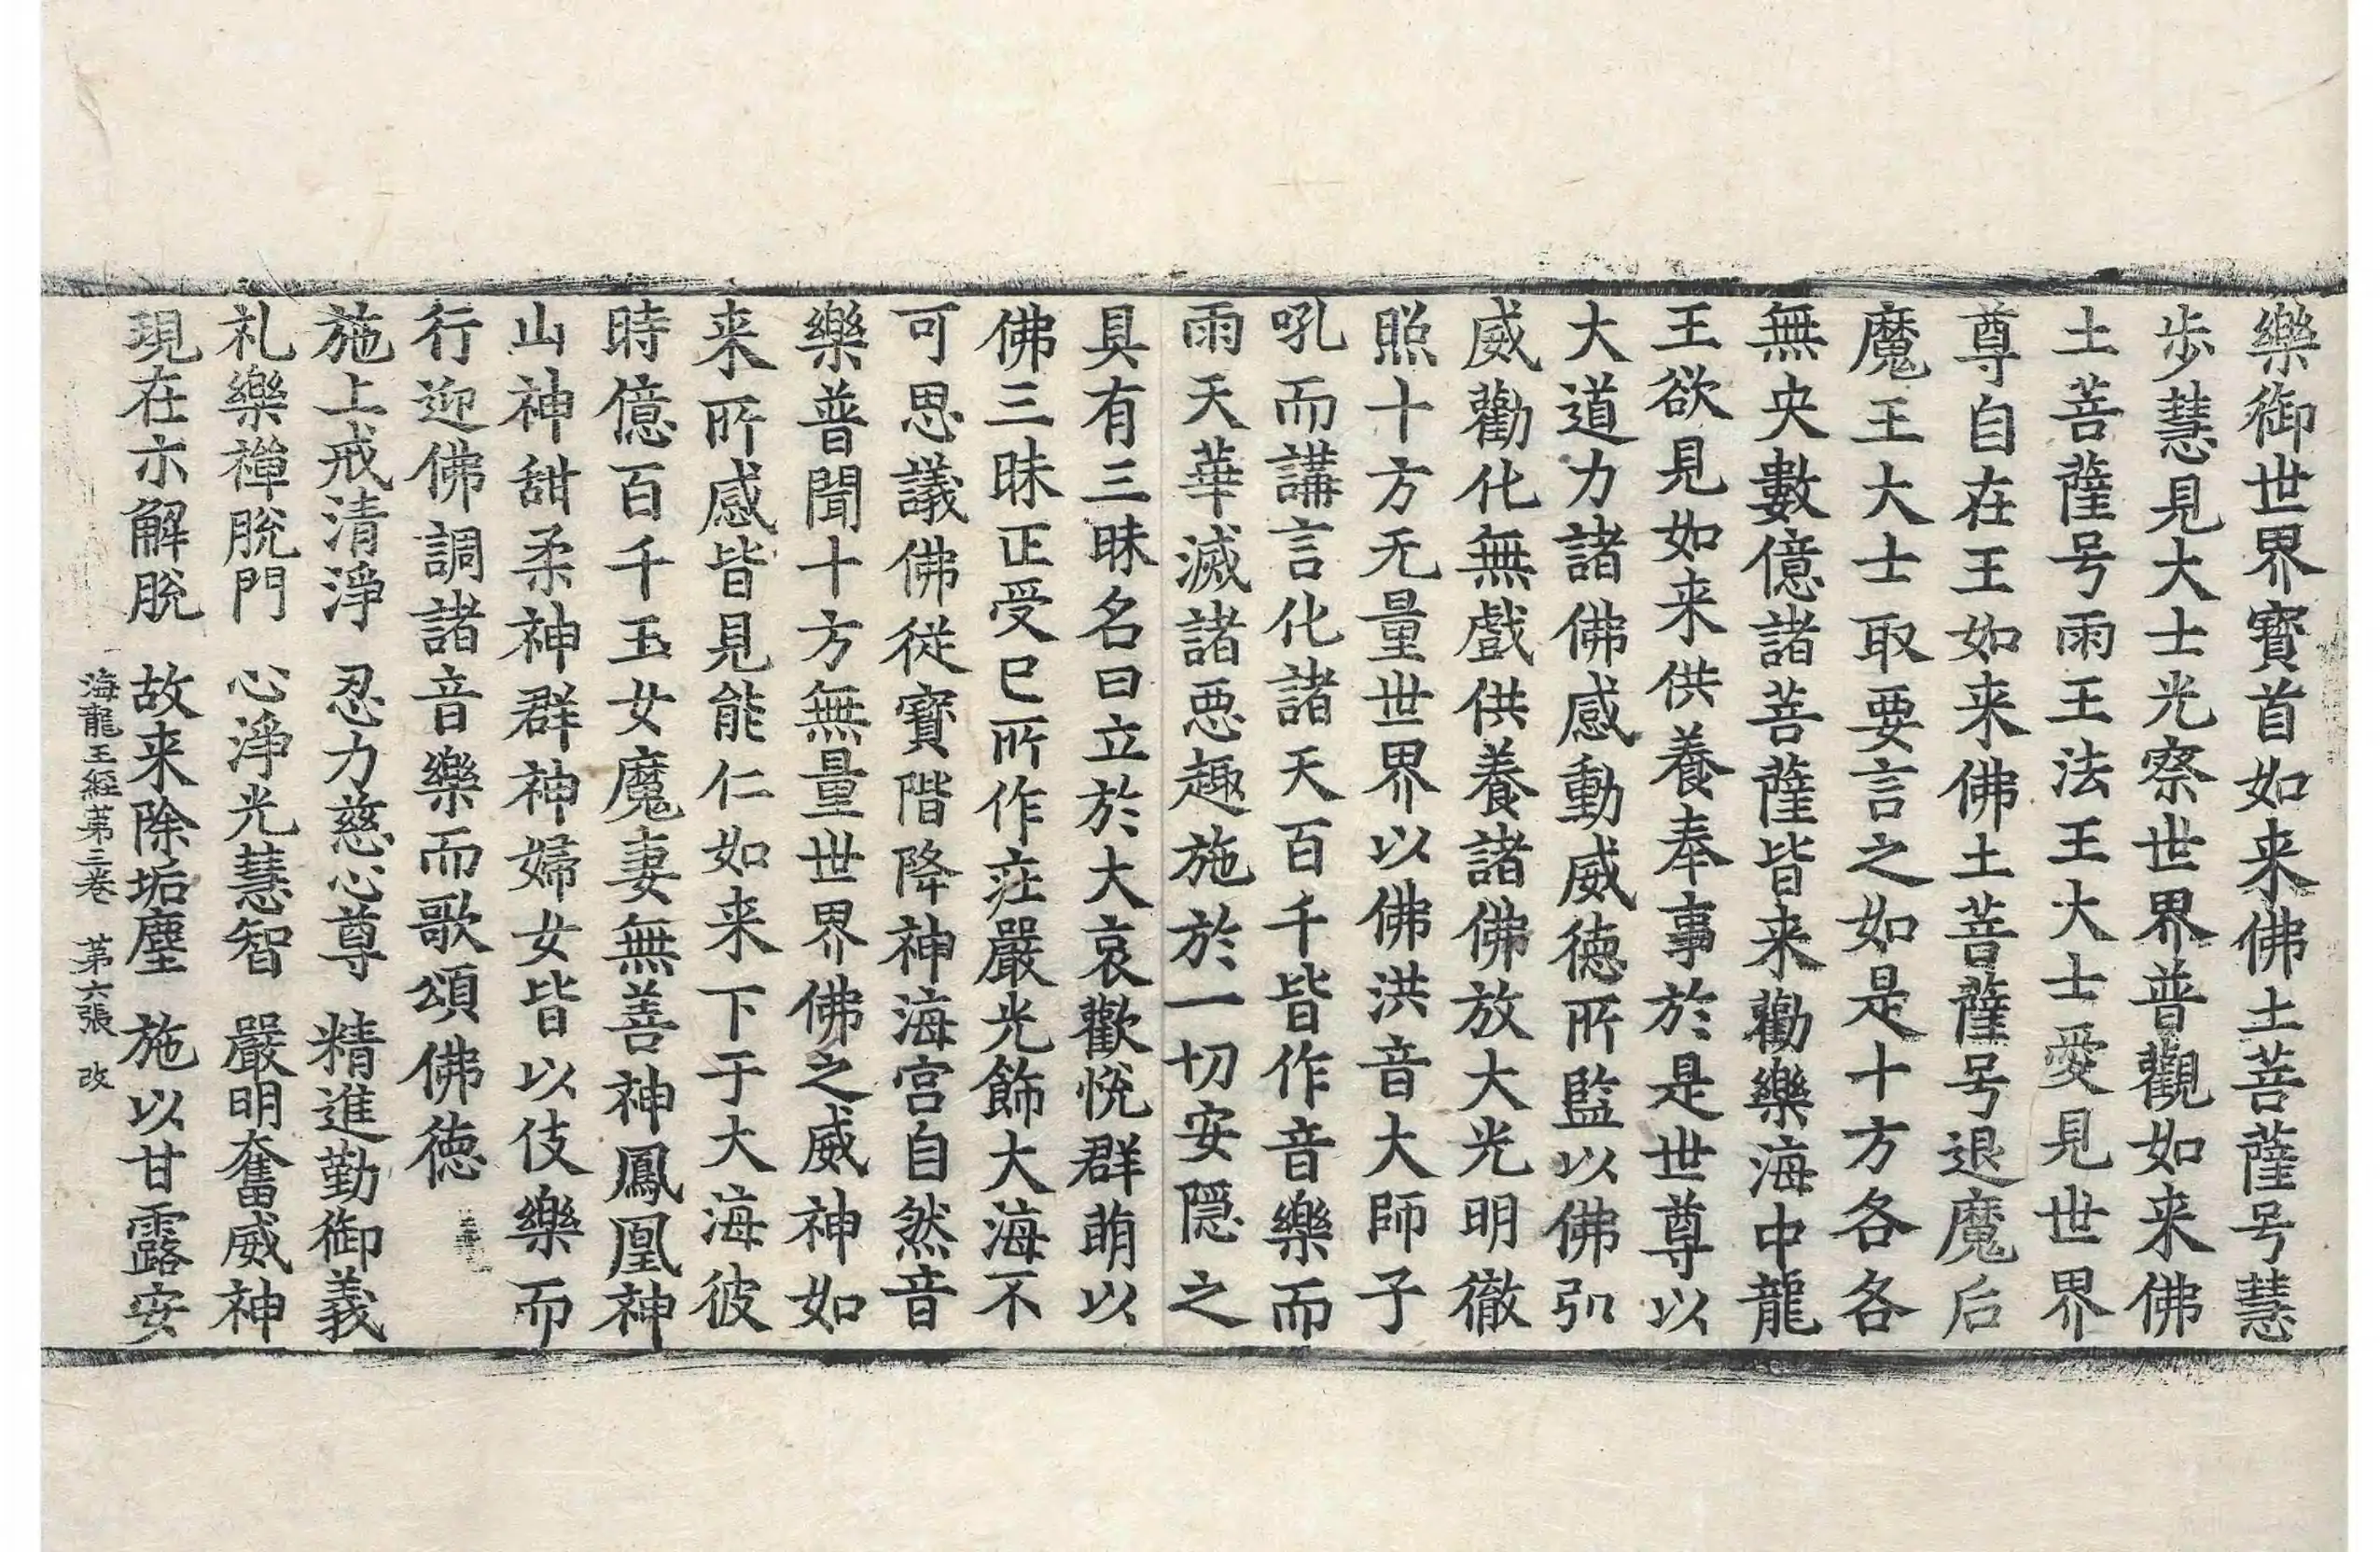 樂御世界寶首如来佛土菩薩号慧
步慧見大士光察世界普觀如来佛
土菩薩号雨王法王大士愛見世界
尊自在王如来佛土菩薩号退魔后
魔王大士取要言之如是十方各各
無央數億諸菩薩皆来勸樂海中龍
王欲見如来供養奉事於是世尊以
大道力諸佛感動威德所監以佛弘
威勸化無戲供養諸佛放大光明徹
照十方无量世界以佛洪音大師子
吼而講言化諸天百千皆作音樂而
雨天華滅諸悪趣施於一切安隱之
具有三昧名曰立於大哀歡悅群萌以
佛三昧正受已所作莊嚴光飾大海不
可思議佛從寶階降神海宮自然音
樂普聞十方無量世界佛之威神如
来所感皆見能仁如来下于大海彼
時億百千玉女魔妻無善神鳳凰神
山神甜柔神群神婦女皆以伎樂而
行迎佛調諸音樂而歌頌佛德
施上戒清淨　忍力慈心尊　精進勤御義
礼樂禪脫門　心淨光慧智　嚴明奮威神
現在亦解脫　故来除垢塵　施以甘露安
海龍王經第三卷　第六張　改